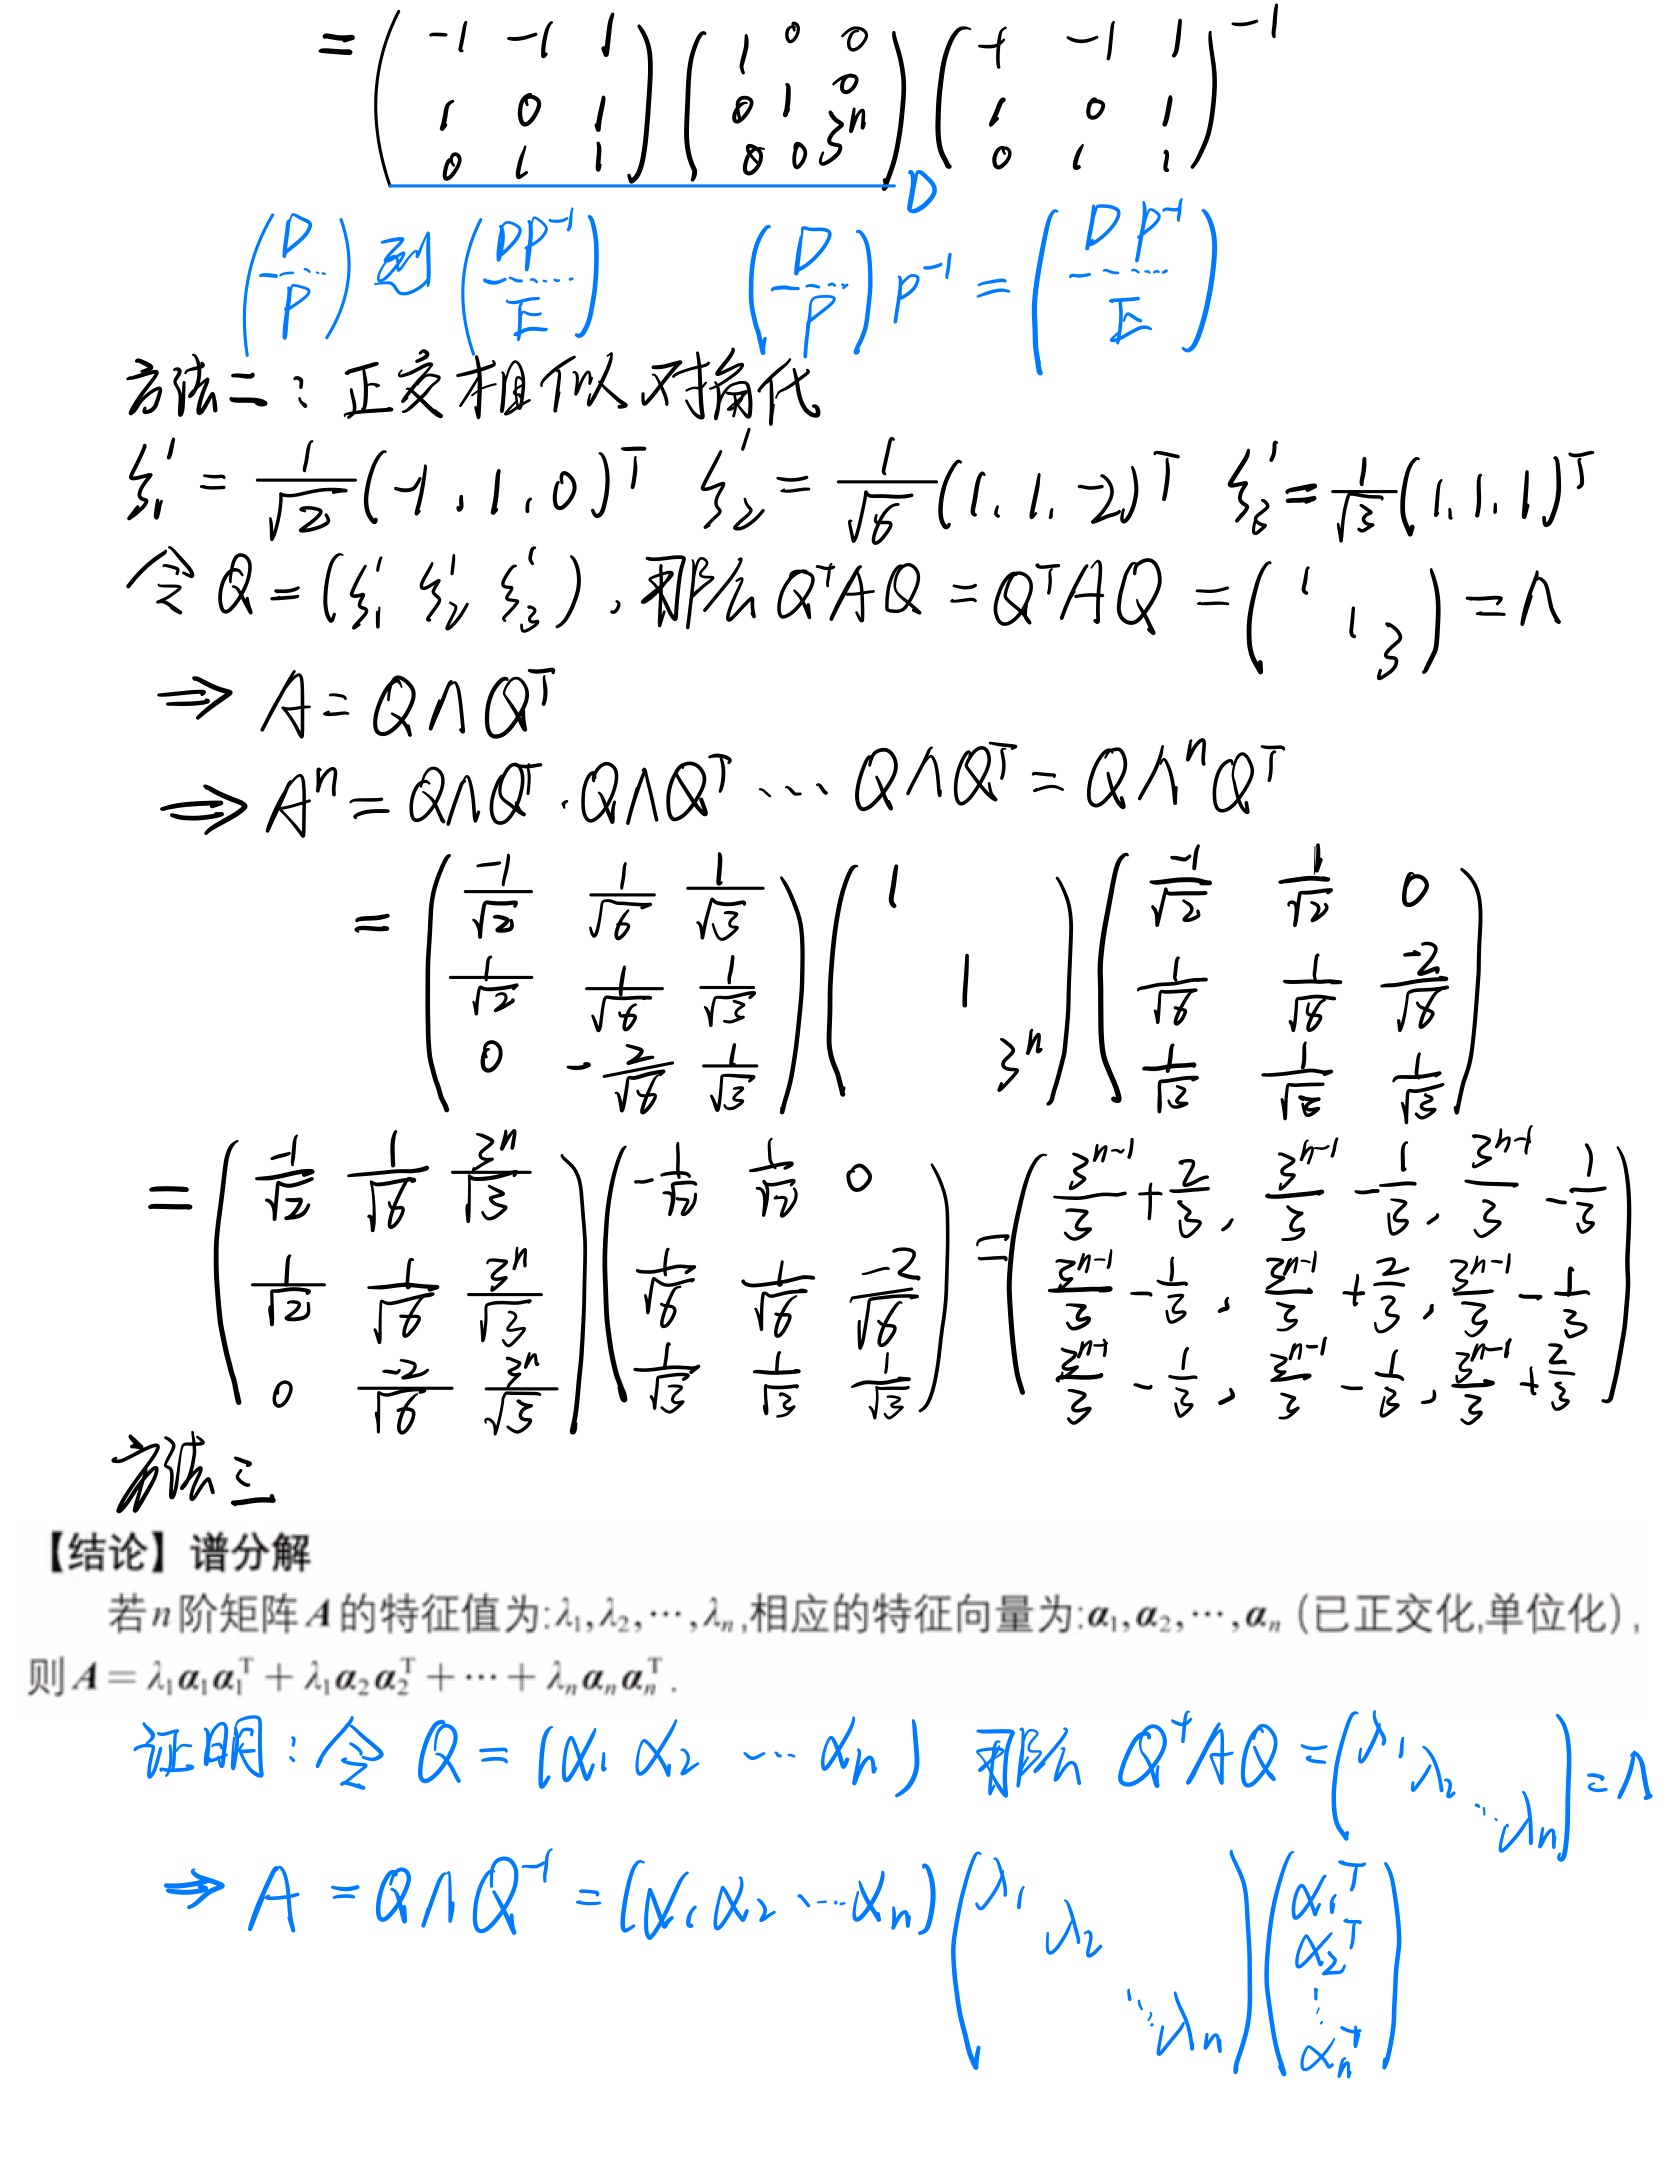 = ( -1 -1 1 ; 1 0 1 ; 0 1 1 ) ( 1 0 0 ; 0 1 0 ; 0 0 3ⁿ ) ( -1 -1 1 ; 1 0 1 ; 0 1 1 )⁻¹
D
(D / P) 到 (DP⁻¹ / E) (D / P) P⁻¹ = (DP⁻¹ / E)
方法二：正交相似对角化
ξ₁' = 1/√2 (-1, 1, 0)ᵀ ξ₂' = 1/√6 (1, 1, -2)ᵀ ξ₃' = 1/√3 (1, 1, 1)ᵀ
令 Q = (ξ₁' ξ₂' ξ₃'), 那么 Q⁻¹AQ = QᵀAQ = ( 1 1 3 ) = Λ
⇒ A = QΛQᵀ
⇒ Aⁿ = QΛQᵀ · QΛQᵀ ⋯ QΛQᵀ = QΛⁿQᵀ
= ( -1/√2 1/√6 1/√3 ; 1/√2 1/√6 1/√3 ; 0 -2/√6 1/√3 ) ( 1 1 3ⁿ ) ( -1/√2 1/√2 0 ; 1/√6 1/√6 -2/√6 ; 1/√3 1/√3 1/√3 )
= ( -1/√2 1/√6 3ⁿ/√3 ; 1/√2 1/√6 3ⁿ/√3 ; 0 -2/√6 3ⁿ/√3 ) ( -1/√2 1/√2 0 ; 1/√6 1/√6 -2/√6 ; 1/√3 1/√3 1/√3 ) = ( 3ⁿ⁻¹/3 + 2/3, 3ⁿ⁻¹/3 - 1/3, 3ⁿ⁻¹/3 - 1/3 ; 3ⁿ⁻¹/3 - 1/3, 3ⁿ⁻¹/3 + 2/3, 3ⁿ⁻¹/3 - 1/3 ; 3ⁿ⁻¹/3 - 1/3, 3ⁿ⁻¹/3 - 1/3, 3ⁿ⁻¹/3 + 2/3 )
方法三
【结论】谱分解
若n阶矩阵A的特征值为:λ₁,λ₂,⋯,λₙ,相应的特征向量为:α₁,α₂,⋯,αₙ (已正交化,单位化),
则A = λ₁α₁α₁ᵀ + λ₁α₂α₂ᵀ + ⋯ + λₙαₙαₙᵀ.
证明：令 Q = (α₁ α₂ ⋯ αₙ) 那么 Q⁻¹AQ = ( λ₁ λ₂ ⋱ λₙ ) = Λ
⇒ A = QΛQ⁻¹ = (α₁ α₂ ⋯ αₙ) ( λ₁ λ₂ ⋱ λₙ ) ( α₁ᵀ ; α₂ᵀ ; ⋮ ; αₙᵀ )